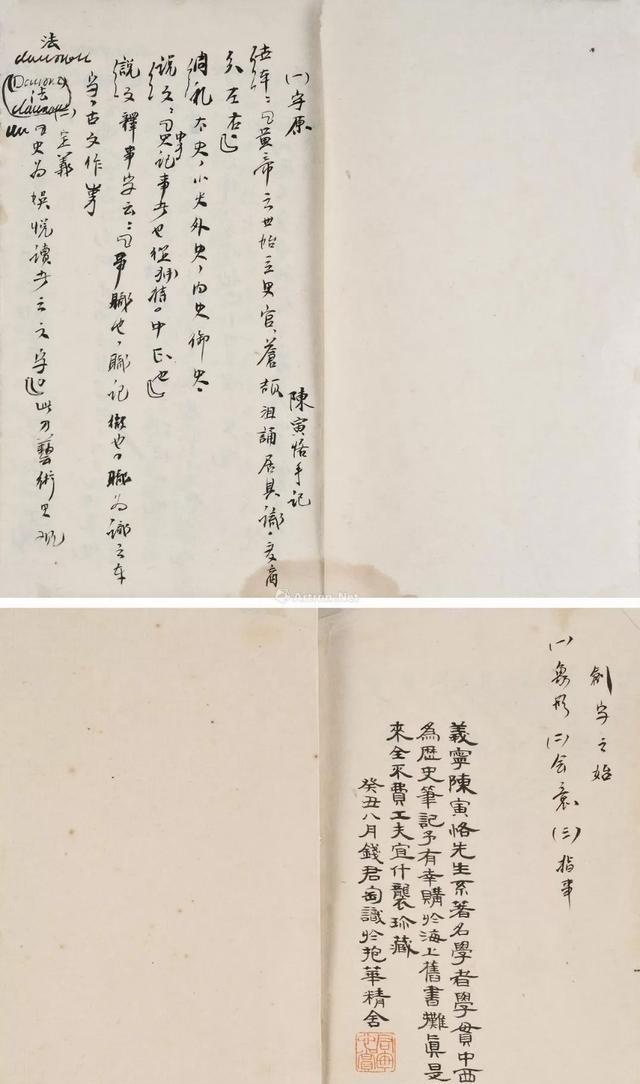 陳寅恪手記
(一)字原
黃帝之世始立史官、蒼頡沮誦居其職、
矣左右
大史、小史外史、內史御史
說文：史記事者也從又持中中正也
說文釋事字云：職也、職記微也、職為識之本
字、古文作
(二)定義
法
史為娛悅讀者之文字 此乃藝術史觀
Artron.Net
創字之始
(一)象形(二)會意(三)指事
義寧陳寅恪先生系著名學者學貫中西
為歷史筆記予有幸購於海上舊書攤真是
來全不費工夫宜什襲珍藏
癸丑八月錢君匋識於抱華精舍